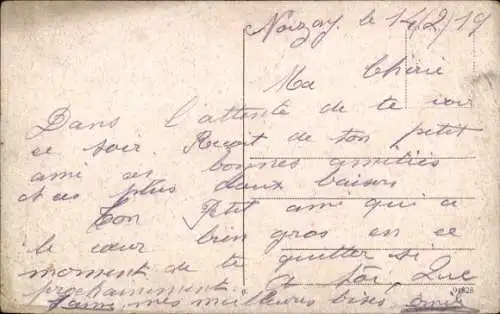 Noizay le 14/2/19
Ma Chérie
Dans l'attente de te voir
ce soir. Reçoit de ton petit
ami ces bonnes amitiés
et ces plus doux baisers
Ton Ptit ami qui a
le cœur bien gros en ce
moment de te quitter si
prochainement. A toi, Que
mes meilleures bises
91828